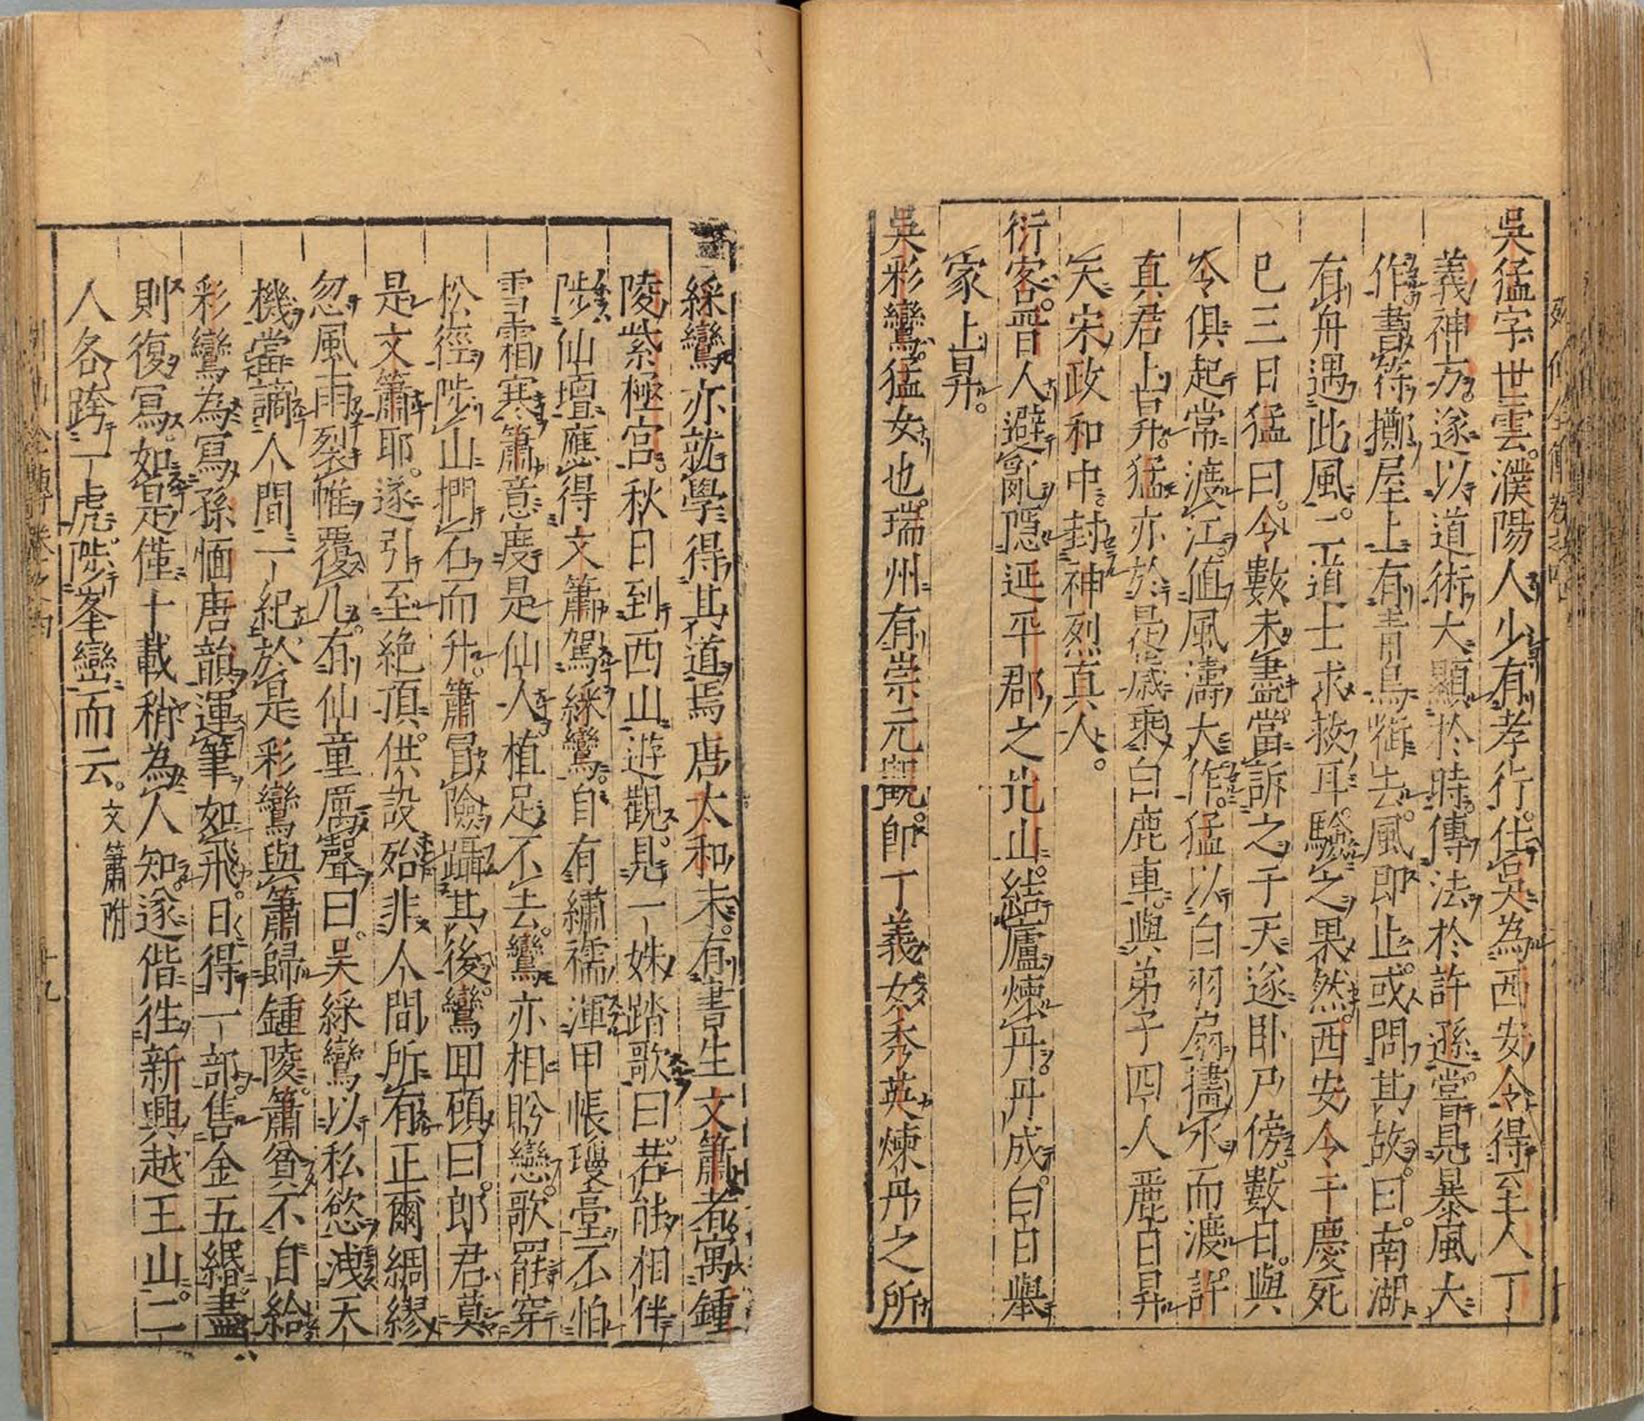 吳猛字世雲。濮陽人少有孝行。仕吳為西安令得至人丁
義神方。遂以道術大顯於時。傳法於許遜。嘗見暴風大
作書符擲屋上有青鳥啣去。風即止。或問其故。曰。南湖
有舟遇此風。二道士求救耳。驗之果然。西安令干慶死
已三日猛曰。令數未盡。當訴之于天遂臥尸傍。數日。與
令俱起常渡江。值風濤大作。猛以白羽扇畫水而渡。許
真君上昇。猛亦於是歲乘白鹿車。與弟子四人麗日昇
天宋政和中。封神烈真人。
衍客。晉人避亂隱延平郡之北山。結廬煉丹。丹成。白日舉
家上昇。
吳彩鸞。猛女也。瑞州有崇元觀。師丁義女秀英煉丹之所
綵鸞亦就學得其道焉唐太和末。有書生文簫者寓鍾
陵紫極宮。秋日到西山遊觀。見一姝踏歌曰。若能相伴
陟仙壇應得文簫駕綵鸞。自有繡襦渾甲帳瓊臺不怕
雪霜寒簫意度是仙人植足不去。鸞亦相盻戀。歌罷穿
松徑陟山捫石而升。簫冒險躡其後。鸞回頭曰。郎君莫
是文簫耶。遂引至絶頂。供設殆非人間所有正爾綢繆
忽風雨裂帷覆几。有仙童厲聲曰。吳綵鸞以私慾洩天
機當謫人間一紀於是彩鸞與簫歸鍾陵。簫貧不自給
彩鸞為寫孫愐唐韻運筆如飛。日得一部。售金五緡。盡
則復寫。如是僅十載稍為人知。遂偕徃新興越王山。二
人各跨一虎。陟峯巒而云。文簫附